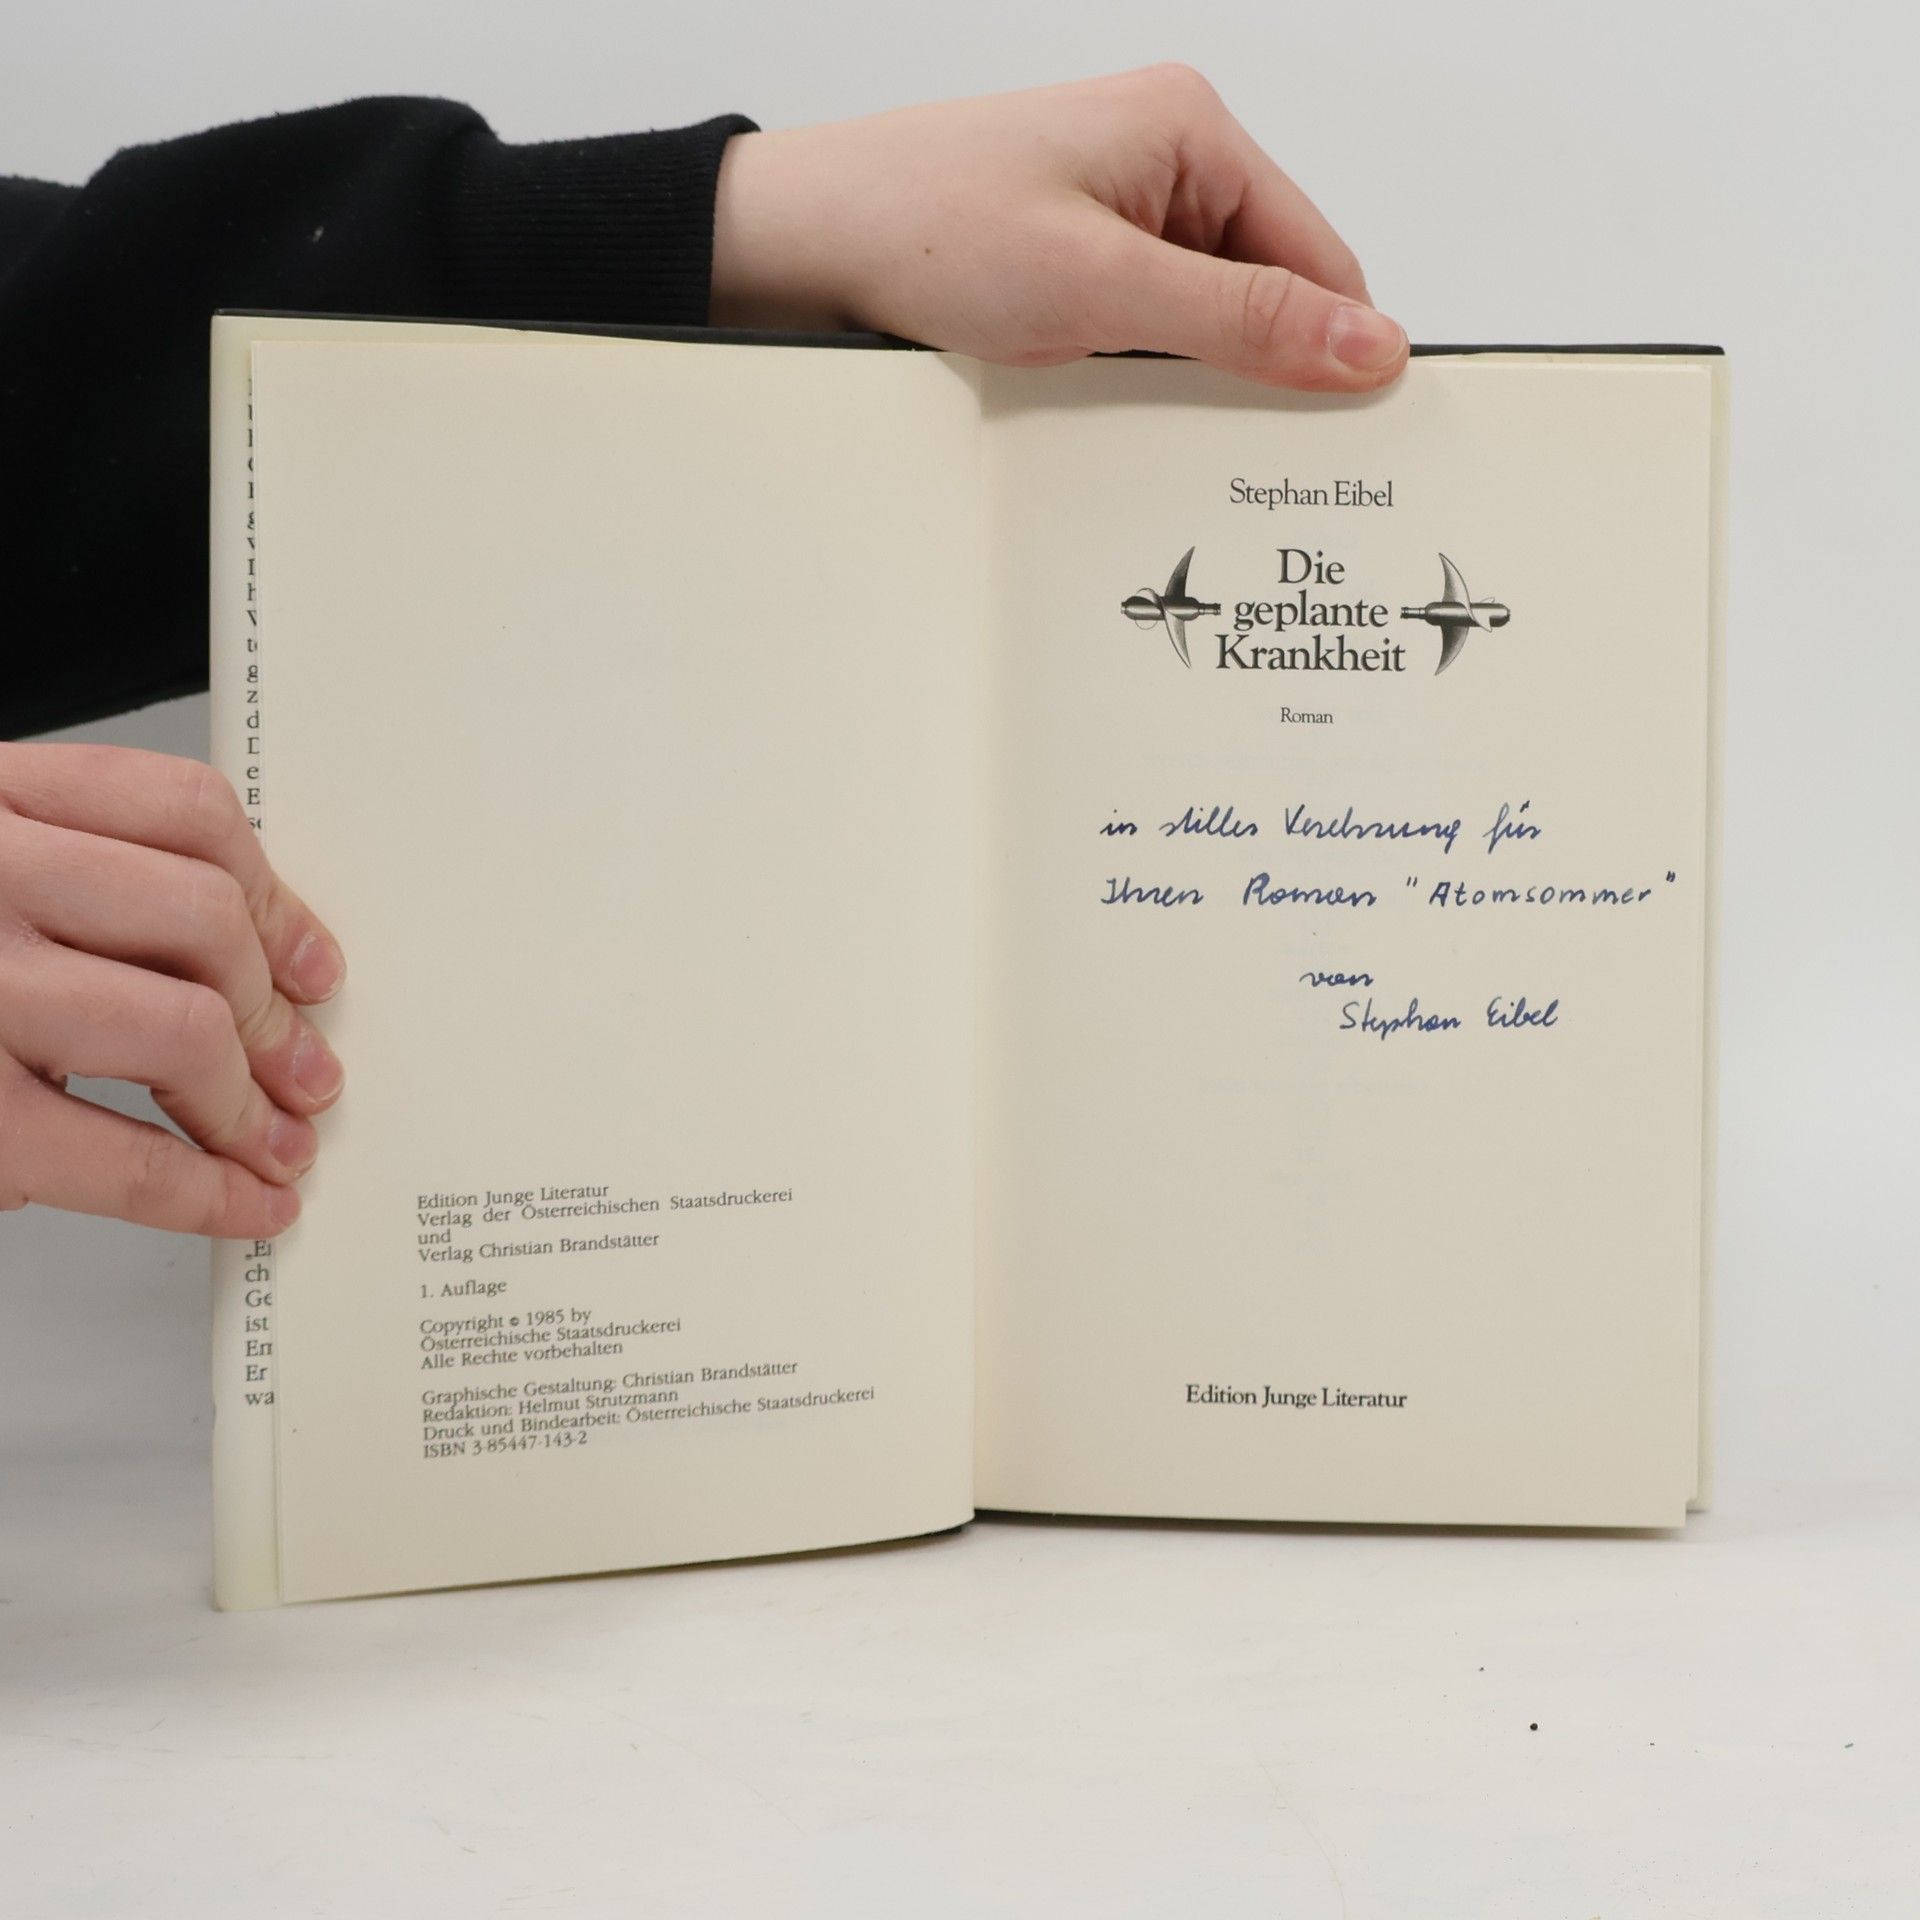 Edition Junge Literatur
Verlag der Österreichischen Staatsdruckerei
und
Verlag Christian Brandstätter
1. Auflage
Copyright © 1985 by
Österreichische Staatsdruckerei
Alle Rechte vorbehalten
Graphische Gestaltung: Christian Brandstätter
Redaktion: Helmut Strutzmann
Druck und Bindearbeit: Österreichische Staatsdruckerei
ISBN 3-85447-143-2
Stephan Eibel
Die
geplante
Krankheit
Roman
in stiller Verehrung für
Ihren Roman "Atomsommer"
von
Stephan Eibel
Edition Junge Literatur